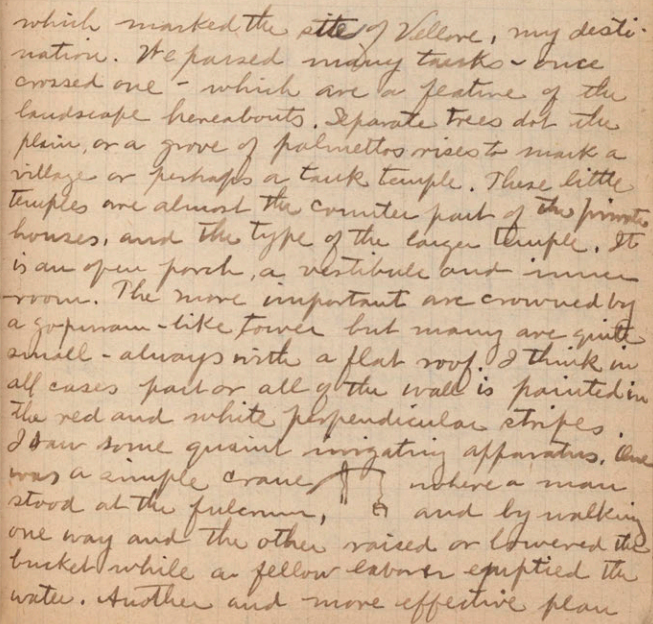 which marked the site of Vellore, my desti-
nation. We passed many tanks - once
crossed one - which are a feature of the
landscape hereabouts. Separate trees dot the
plain, or a grove of palmettos rises to mark a
village or perhaps a tank temple. These little
temples are almost the counter part of the private
houses, and the type of the larger temple. It
is an open porch, a vestibule and inner
room. The more important are crowned by
a gopuram-like tower but many are quite
small - always with a flat roof. I think in
all cases part or all of the wall is painted in
the red and white perpendicular stripes.
I saw some quaint irrigating apparatus. One
was a simple crane where a man
stood at the fulcrum, and by walking
one way and the other raised or lowered the
bucket while a fellow laborer emptied the
water. Another and more effective plan